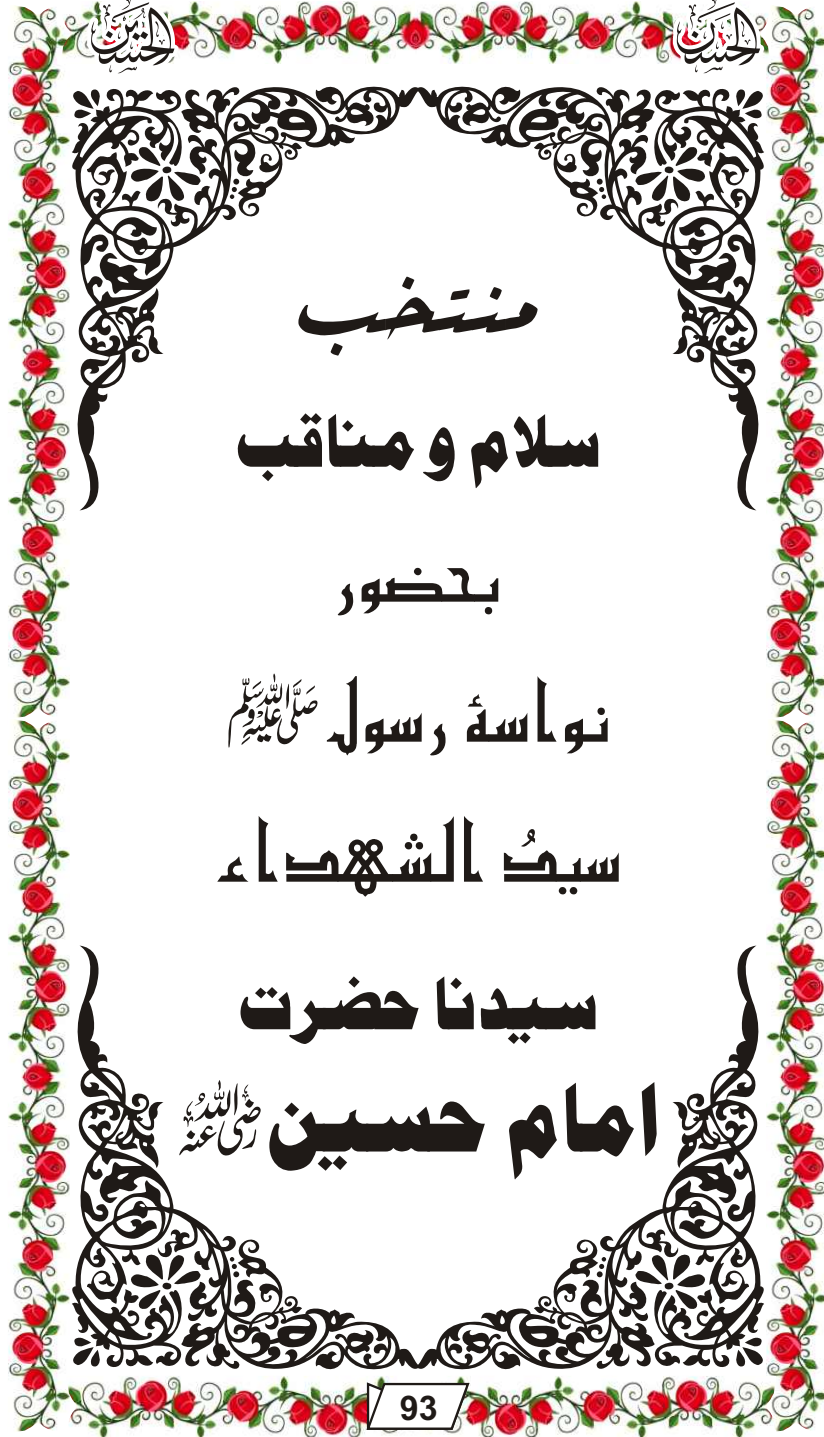 الحسین الحسن
منتخب
سلام و مناقب
بحضور
نواسۂ رسول ﷺ
سیدُ الشھداء
سیدنا حضرت
امام حسین رضی اللہ عنہ
93